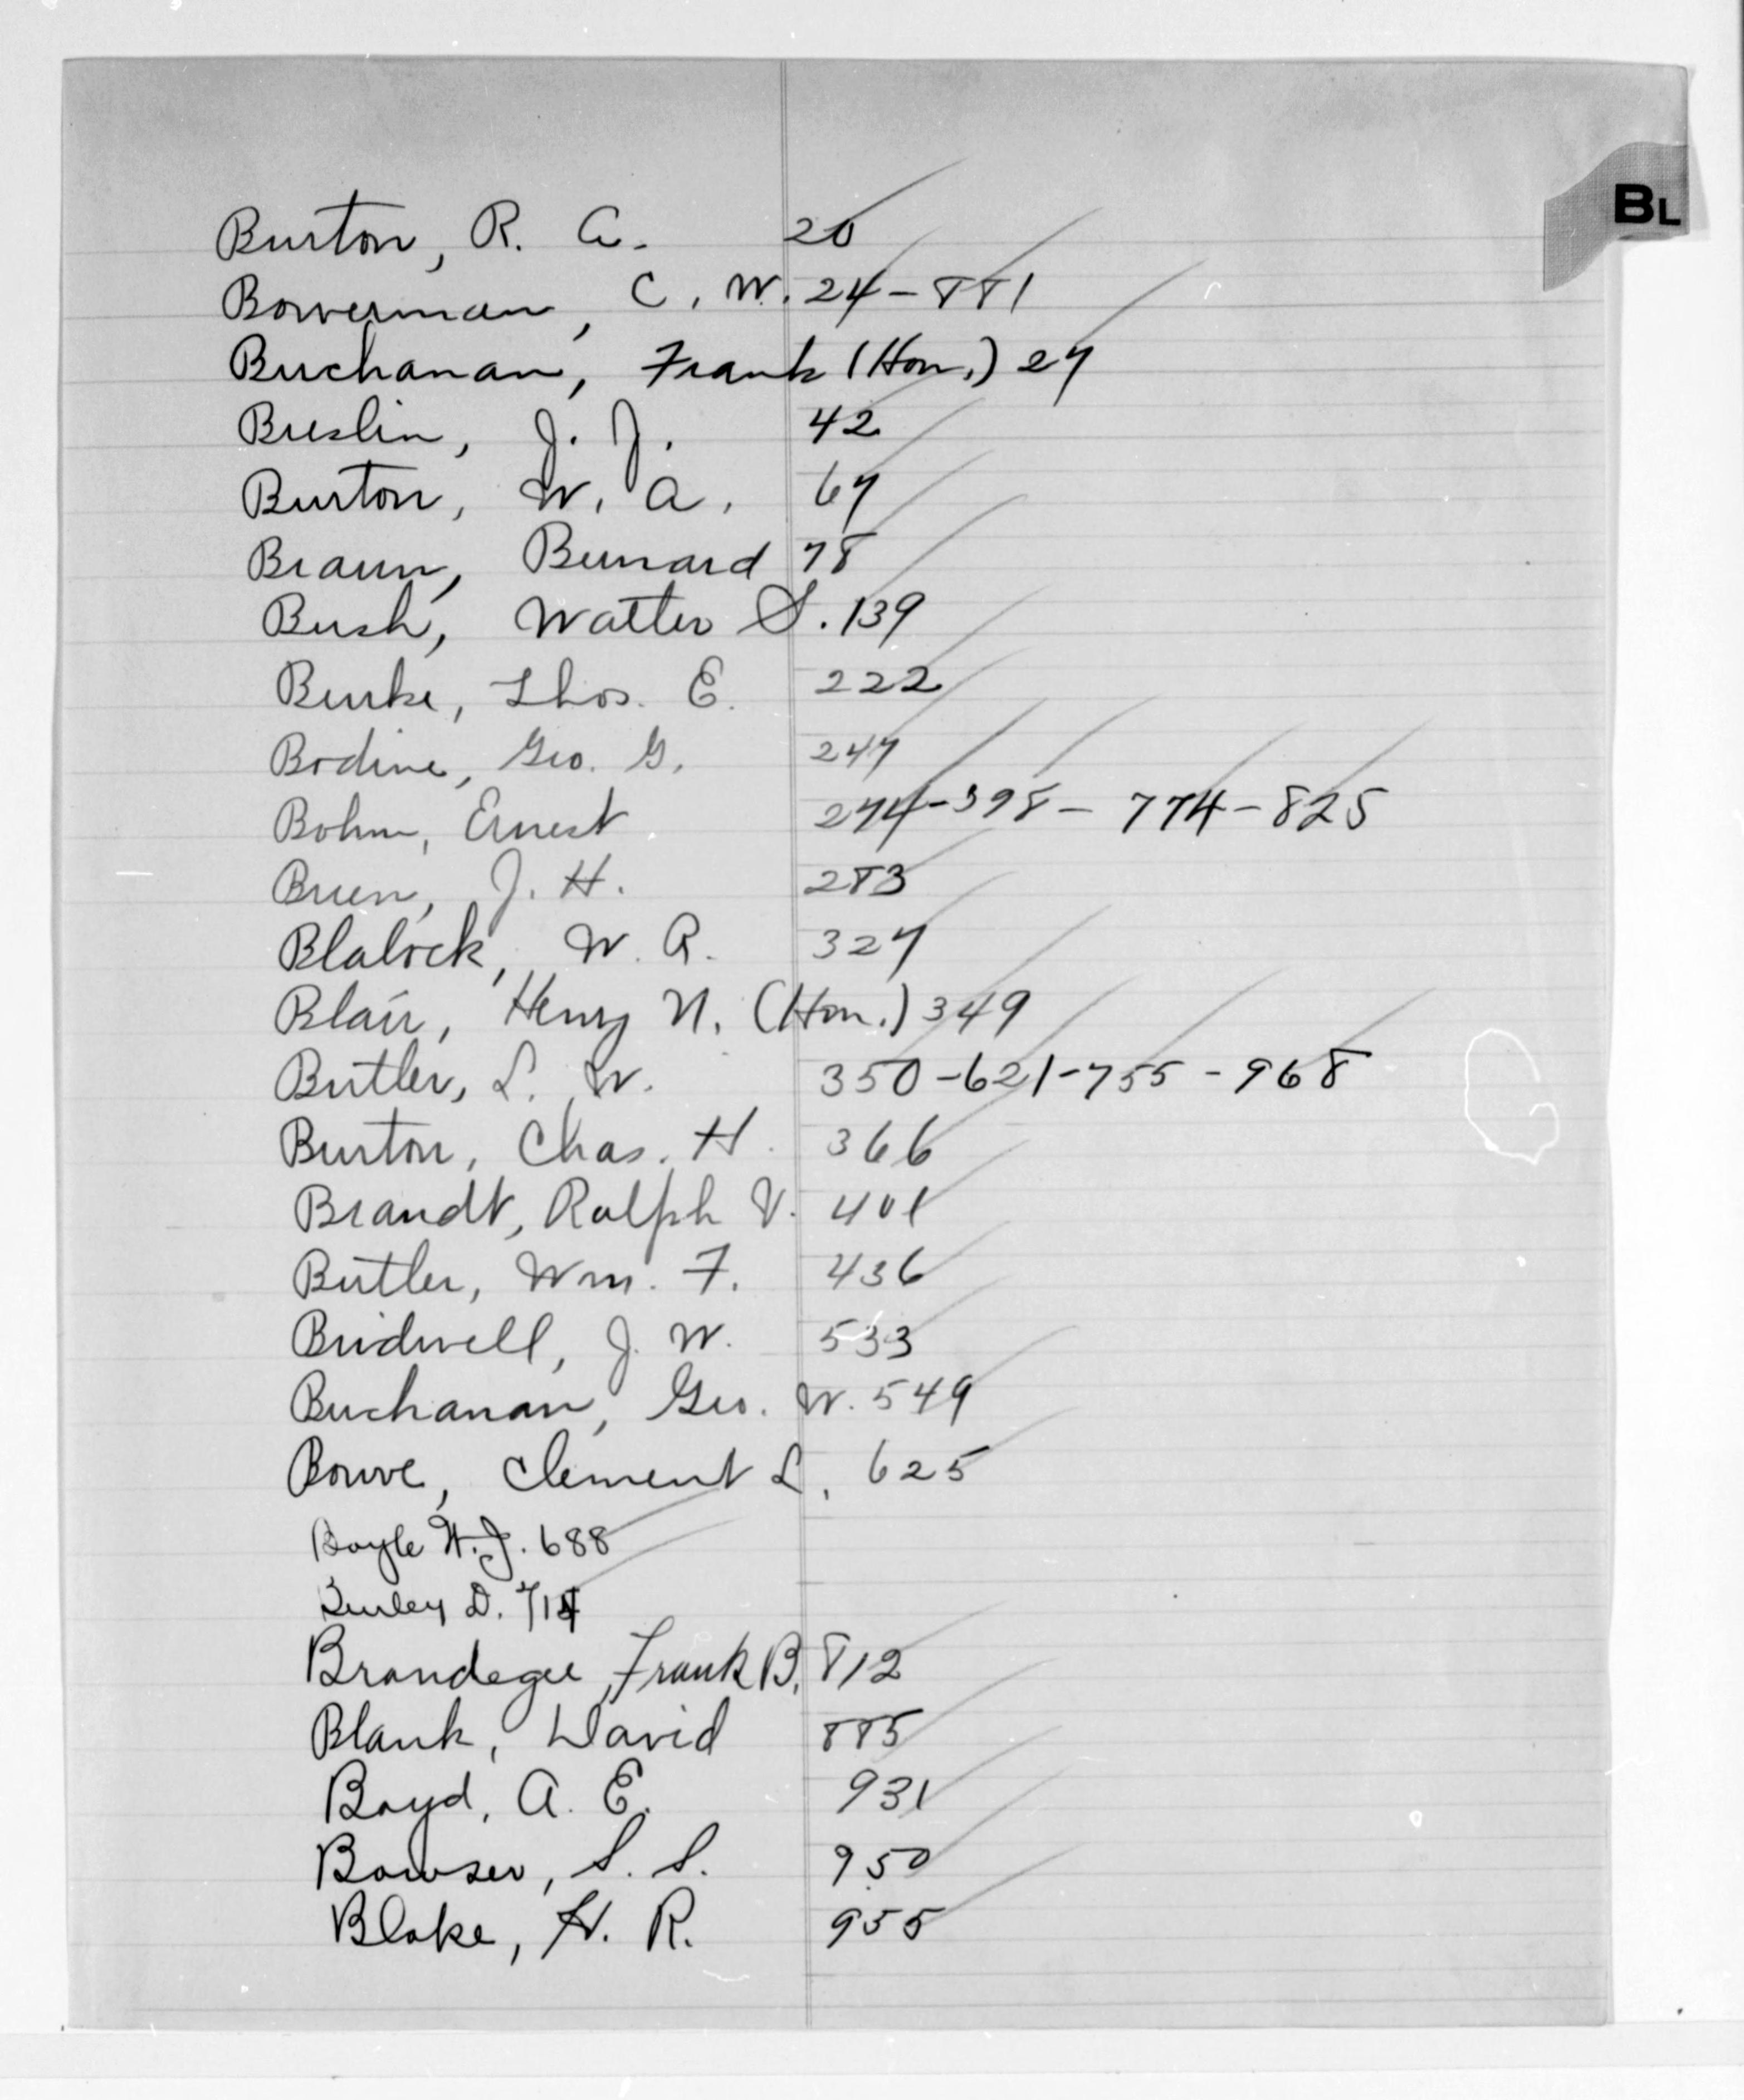 BL
Burton, R. A. 20
Bowerman, C. W. 24-881
Buchanan, Frank (Hon.) 27
Breslin, J. J. 42
Burton, W. A. 67
Braun, Bernard 78
Bush, Walter S. 139
Burke, Thos. E. 222
Bodine, Geo. G. 247
Bohm, Ernest 274-398-774-825
Bruen, J. H. 283
Blalock, W. R. 327
Blair, Henry N. (Hon.) 349
Butler, L. W. 350-621-755-968
Burton, Chas. H. 366
Brandt, Ralph V. 401
Butler, Wm. F. 436
Bridwell, J. W. 533
Buchanan, Geo. W. 549
Bouve, Clement L. 625
Boyle W. J. 688
D.
Brandegee, Frank B. 812
Blank, David 885
Boyd, A. E. 931
Bowser, S. S. 950
Blake, H. R. 955